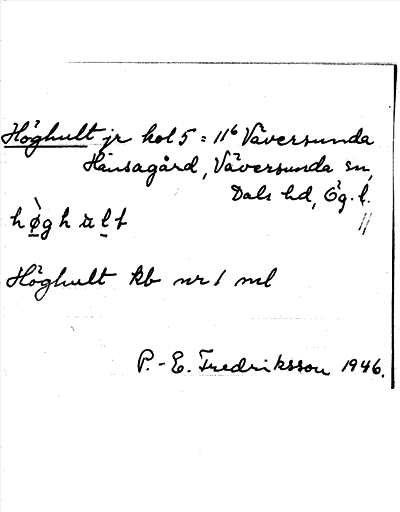 Höghult jr kol 5 = 11⁶ Väversunda
Hänsagård, Väversunda sn,
Dals hd, Ög. l.
Höghult kb nr 1 ml
P.-E. Fredriksson 1946.